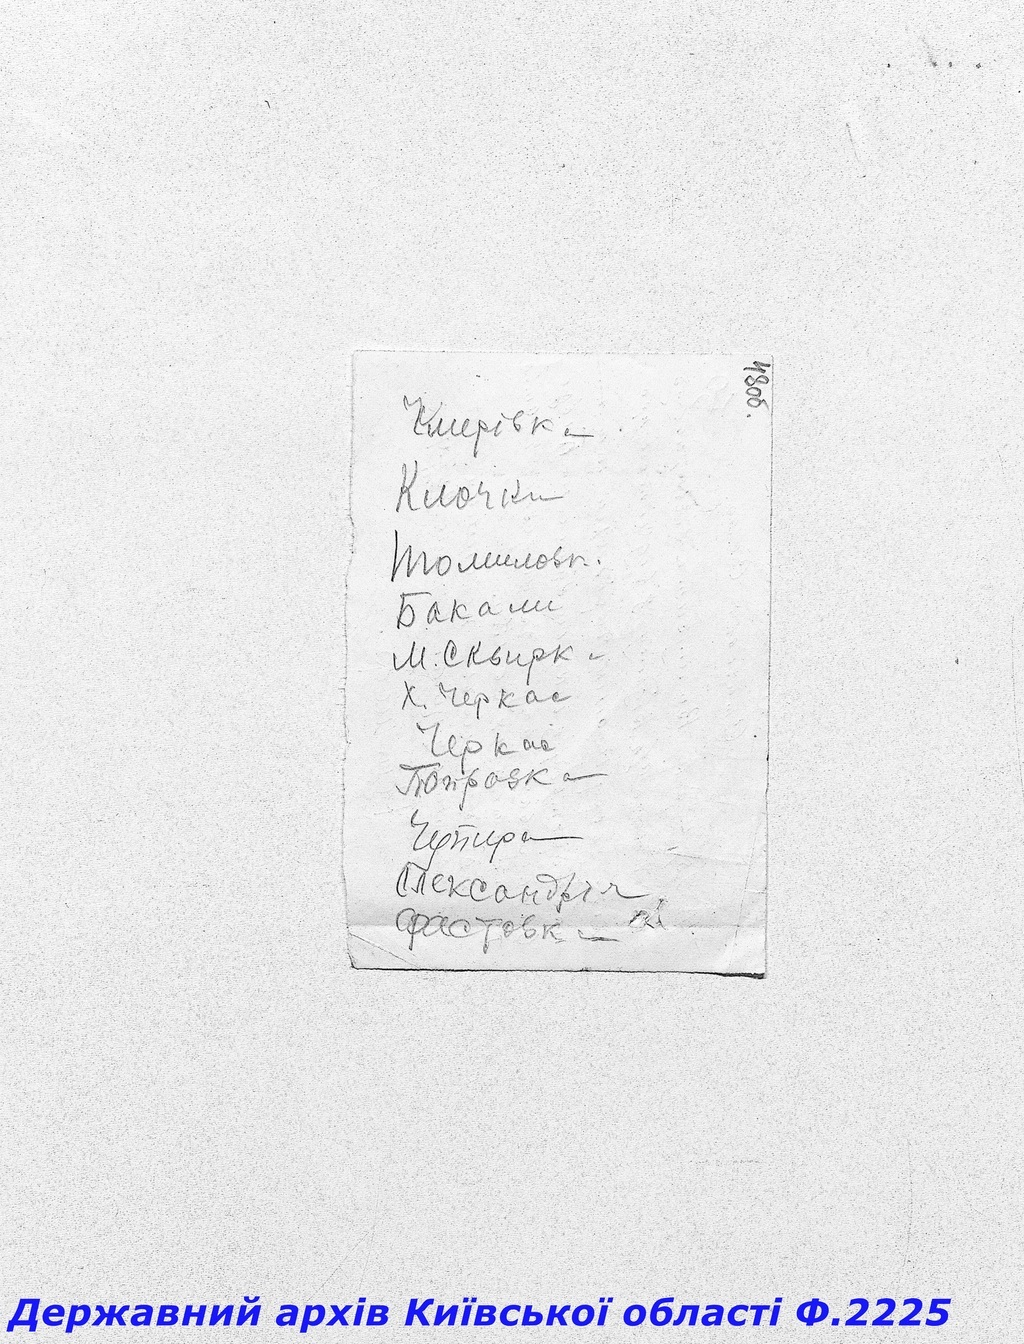 48об.
Чмерівка
Клочки
Томиловк.
Бакали
М. Сквирка
Х. Черкас
Черкас
Поправка
Чупира
Олександрія
Фастовка
Державний архів Київської області Ф.2225